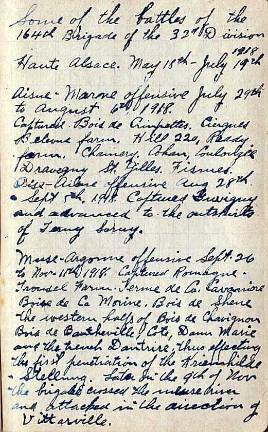 Some of the battles of the
164th Brigade of the 32nd Division
1918
Haute Alsace. May 18th - July 19th
Aisne - Marne offensive July 29th
to August 6th 1918.
Captured Bois de Grimpettes. Cierges
Belleve farm. Hill 220, Reddy
farm. Chamery. Cohan, Coulonges
Dravegny St Gilles. Fismes.
Oise-Aisne offensive Aug 28th
- Sept 8th, 1918 Captured Juvigny
and advanced to the outskirts
of Terny Sorny.
Meuse-Argonne offensive Sept. 26
to Nov 11th, 1918. Captured Romagne.
Farm. Ferme de La
Bois de La Moine. Bois de
the western half of Bois de Chavignon
Bois de Bantheville, Cote, Dame Marie
and the trench Dantrise, thus effecting
the first penetration of the Kriemhilde
- Stellung. Later in the 9th of Nov
the brigade crossed the meuse river
and attacked in the direction of
Vittarville.